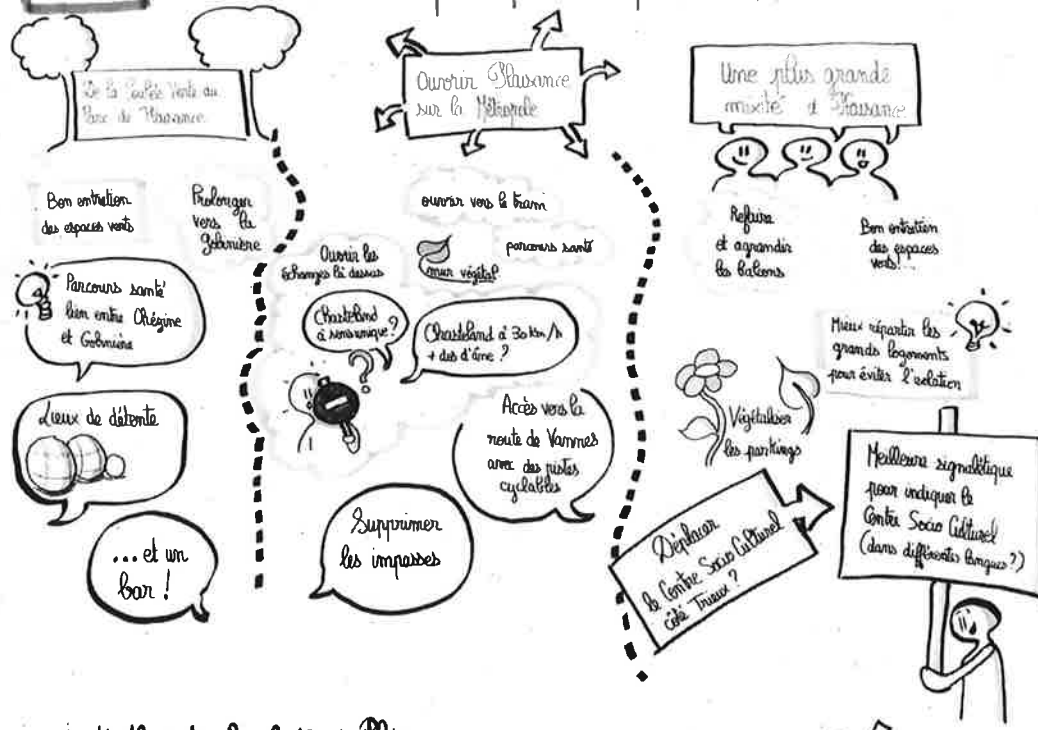 De la Coulée Verte au
Parc de Plaisance
Bon entretien
des espaces verts
Prolonger
vers la
Golinière
Parcours santé
lien entre Chézine
et Golinière
Lieux de détente
...et un
bar !
Ouvrir Plaisance
sur la Métropole
ouvrir vers le tram
Ouvrir les
échanges là dessus
mur végétal
parcours santé
Chasteland
à sens unique ?
Chasteland à 30 km/h
+ des d'âne ?
Accès vers la
route de Vannes
avec des pistes
cyclables
Supprimer
les impasses
Une plus grande
mixité à Plaisance
Refaire
et agrandir
les balcons
Bon entretien
des espaces
verts!...
Mieux répartir les
grands logements
pour éviter l'isolation
Végétaliser
les parkings
Déplacer
le Centre Socio Culturel
côté Trieux ?
Meilleure signalétique
pour indiquer le
Centre Socio Culturel
(dans différentes langues ?)